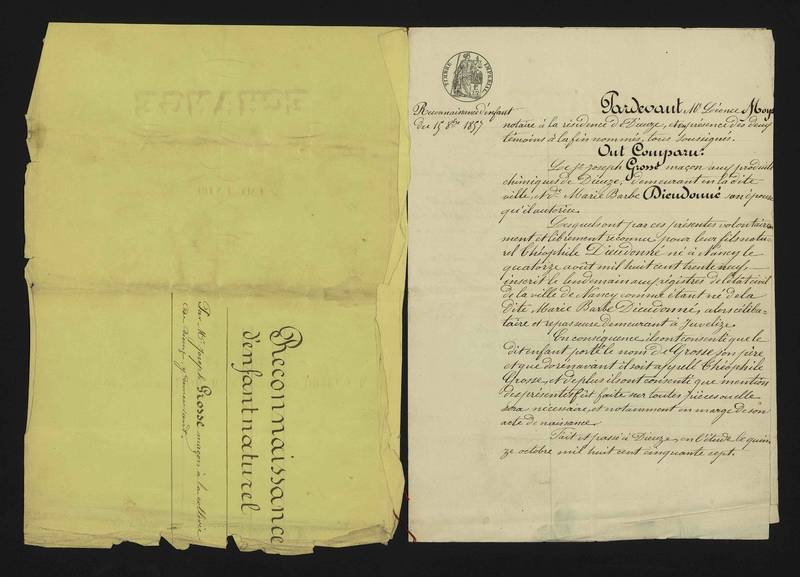 Reconnaissance
d'enfant naturel
Par Mr Joseph Grosse maçon à la
de Dieuze y demeurant.
TIMBRE IMPERIAL
Reconnaissance d'enfant
du 15 8bre 1857
Pardevant Me Léonce Moys
notaire à la résidence de Dieuze, et en présence des deux
témoins à la fin nommés, tous soussignés.
Ont Comparu:
Le Sr Joseph Grosse maçon aux produits
chimiques de Dieuze, demeurant en la dite
ville, et de Marie Barbe Dieudonné son épouse
qu'il autorise.
Lesquels ont par ces présentes volontaire
ment et librement reconnu pour leur fils natu
rel Théophile Dieudonné né à Nancy le
quatorze août mil huit cent trente neuf,
inscrit le lendemain aux registres de l'état civil
de la ville de Nancy comme étant né de la
dite Marie Barbe Dieudonné, alors céliba-
taire et repasseuse demeurant à Juvelize.
En conséquence ils ont consenti que le
dit enfant porte le nom de Grosse son père
et que dorénavant il soit appellé Théophile
Grosse, et de plus ils ont consenti que mention
des présentes fut faite sur toutes pièces ou elle
sera nécessaire, et notamment en marge de son
acte de naissance.
Fait et passé à Dieuze, en l'étude le quin
ze octobre mil huit cent cinquante sept.